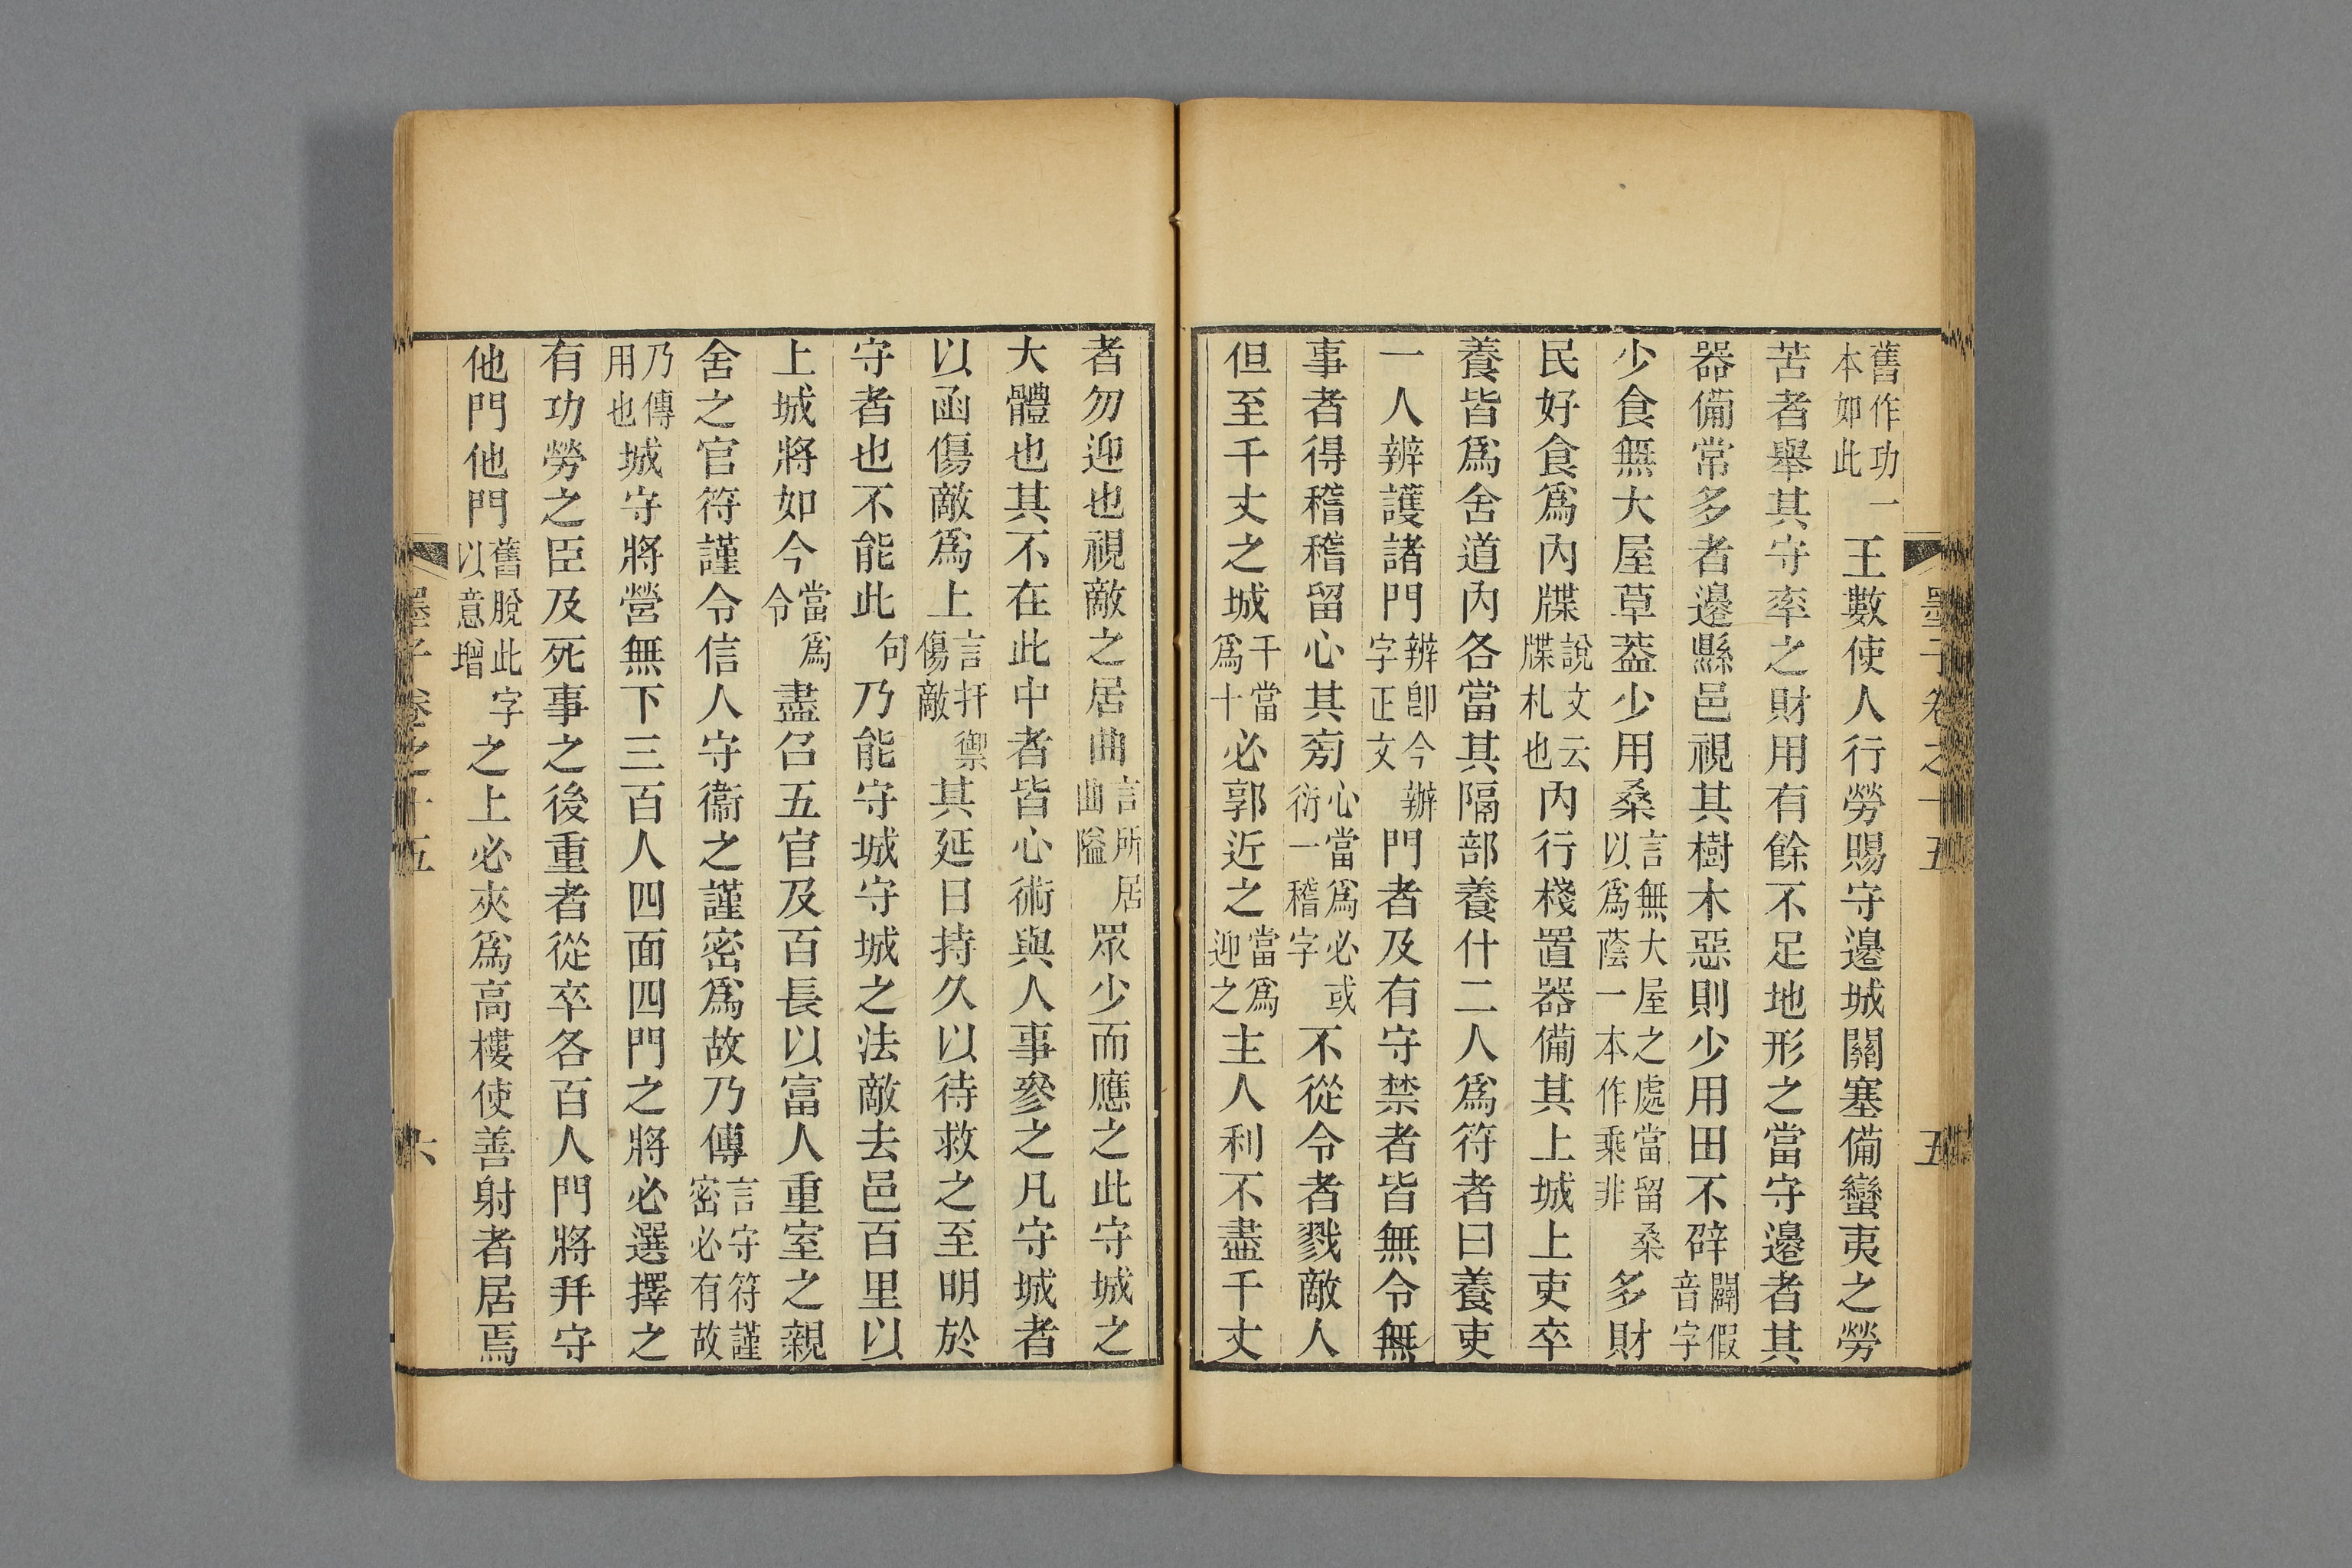 墨子卷之十五 五
舊作功一本如此王數使人行勞賜守邊城關塞備蠻夷之勞
苦者舉其守率之財用有餘不足地形之當守邊者其
器備常多者邊縣邑視其樹木惡則少用田不辟闢假音字
少食無大屋草葢少用桑言無大屋之處當留桑以爲蔭一本作乘非多財
民好食爲內牒說文云牒札也內行棧置器備其上城上吏卒
養皆爲舍道內各當其隔部養什二人爲符者曰養吏
一人辨護諸門辨卽今辦字正文門者及有守禁者皆無令無
事者得稽稽留心其旁心當爲必或衍一稽字不從令者戮敵人
但至千丈之城千當爲十必郭近之當爲迎之主人利不盡千丈
者勿迎也視敵之居曲言所居曲隘眾少而應之此守城之
大體也其不在此中者皆心術與人事參之凡守城者
以函傷敵爲上言扞禦傷敵其延日持久以待救之至明於
守者也不能此句乃能守城守城之法敵去邑百里以
上城將如今當爲令盡召五官及百長以富人重室之親
舍之官符謹令信人守衞之謹密爲故乃傳言守符謹密必有故
乃傳用也城守將營無下三百人四面四門之將必選擇之
有功勞之臣及死事之後重者從卒各百人門將幷守
他門他門舊脫此字以意增之上必夾爲高樓使善射者居焉
墨子卷之十五 六